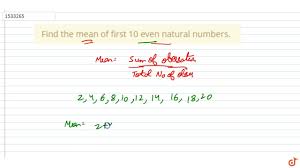 1533265
Find the mean of first 10 even natural numbers.
Mean: Sum of
Total No of
2,4,6,8,10,12,14, 16, 18,20
Mean: 2